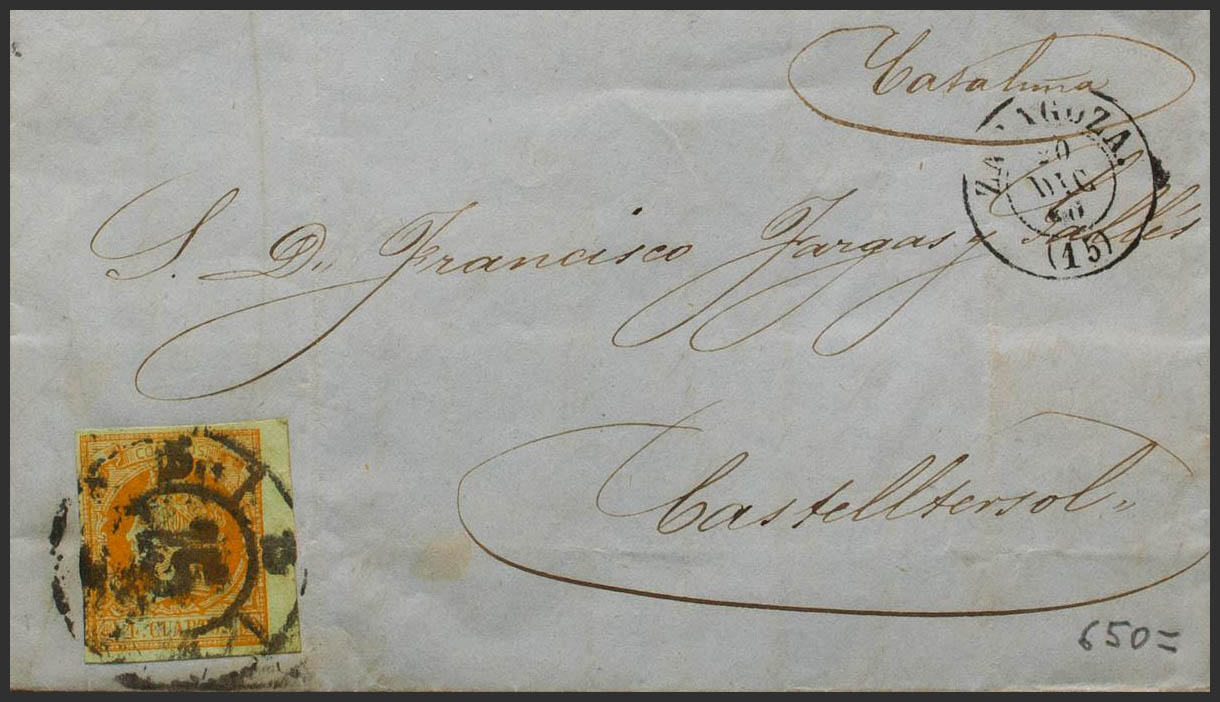 Cataluña
ZARAGOZA.
20
DIC
60
(15)
S. D.n Francisco Fargas y Vallés
Castelltersol
CORREOS
15
4 CUARTOS
650=